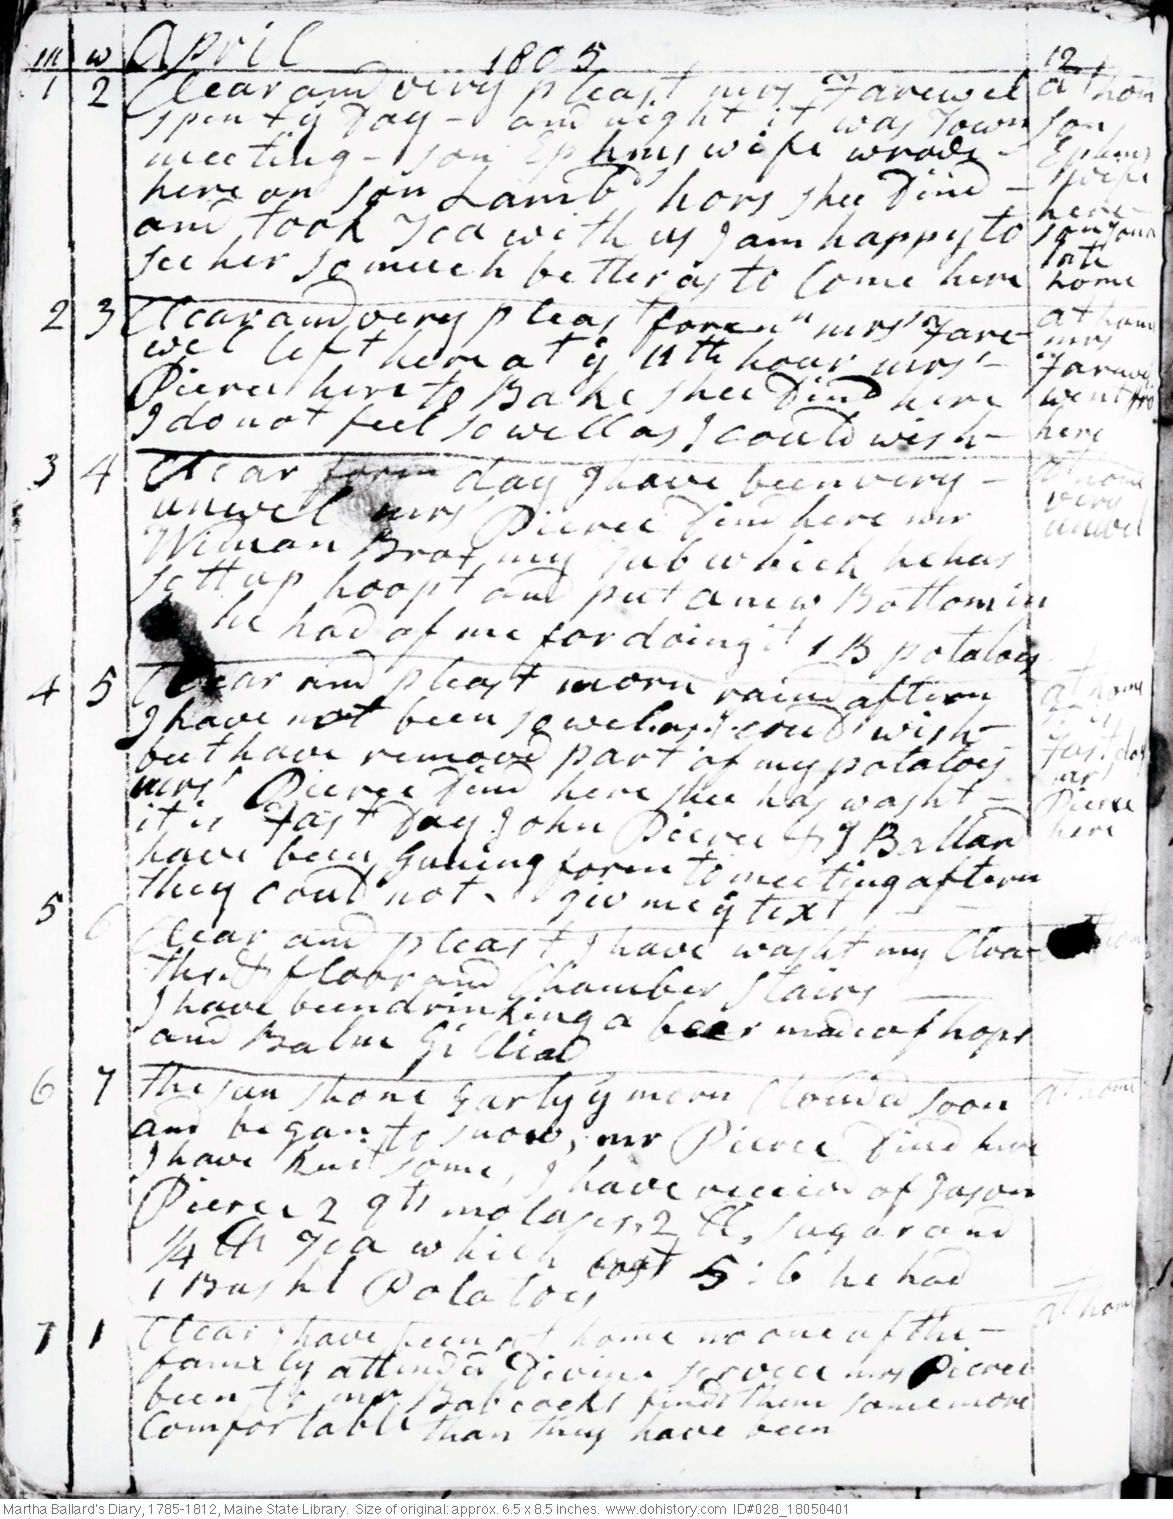 m w April 1805 12
1 2 Clear and very pleast mrs Farewel at hom
spent ye Day - and night it was Town son
meeting - son Ephms wife wrode - Ephms
here on son Lambds hors shee Dind - wife
and took Tea with us I am happy to here
see her so much better as to Come here son
home
2 3 Clear and very pleast foren mrs Fare- at home
wel left here at ye 11th hour mrs - mrs
Pierce here to Bake shee Dind here Farewel
I do not feel so well as I could wish - went fro
here
3 4 Clear foren day I have been very - at home
unwel mrs Pierce Dind here mr very
Wiman Brot my Tub which he has unwel
sett up hoopt and put a new Bottom in
he had of me for doing it 1 B potatoes
4 5 Clear and pleast morn raind aftern at home
I have not been so wel as I coud wish -
but have removd part of my potatoes Fast day
mrs Pierce Dind here shee has washt - mrs
it is Fast Day John Pierce & J Ballard Pierce
have been guning foren to meeting aftern here
they coud not giv me ye text
5 6 Clear and pleast I have washt my Cloa-
ths & floor and Chamber stairs
I have been drinking a beer made of hops
and Balm Gillead
6 7 the sun shone Early ye morn Clouded soon at home
and began to snow, mr Pierce Dind here
I have knit some, I have receivd of Jason
Pierce 2 qts molases, 2 lb, sugar and
1/4 lb Tea which cost 5:6 he had
1 Bushl Potatoes
7 1 Clear I have been at home no one of the - at home
family attended Divine service mrs Pierce
been to mr Babcocks finds them some more
Comfortable than they have been
Martha Ballard's Diary, 1785-1812, Maine State Library. Size of original: approx. 6.5 x 8.5 inches. www.dohistory.com ID#028_18050401